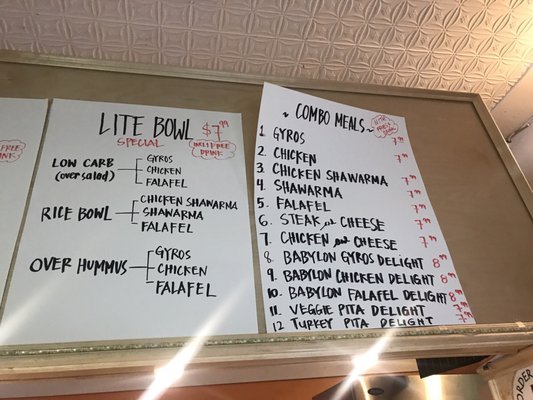 FREE
DRINK
LITE BOWL $7.99
SPECIAL
INCL. FREE
DRINK
LOW CARB
(over salad)
GYROS
CHICKEN
FALAFEL
RICE BOWL
CHICKEN SHAWARMA
SHAWARMA
FALAFEL
OVER HUMMUS
GYROS
CHICKEN
FALAFEL
~ COMBO MEALS ~
DRINK
1 GYROS 7.99
2 CHICKEN 7.99
3. CHICKEN SHAWARMA 7.99
4. SHAWARMA 7.99
5. FALAFEL 7.99
6. STEAK and CHEESE 7.99
7. CHICKEN and CHEESE 7.99
8. BABYLON GYROS DELIGHT 8.99
9. BABYLON CHICKEN DELIGHT 8.99
10. BABYLON FALAFEL DELIGHT 8.99
11. VEGGIE PITA DELIGHT 7.99
12 TURKEY PITA DELIGHT 7.99
ORDER